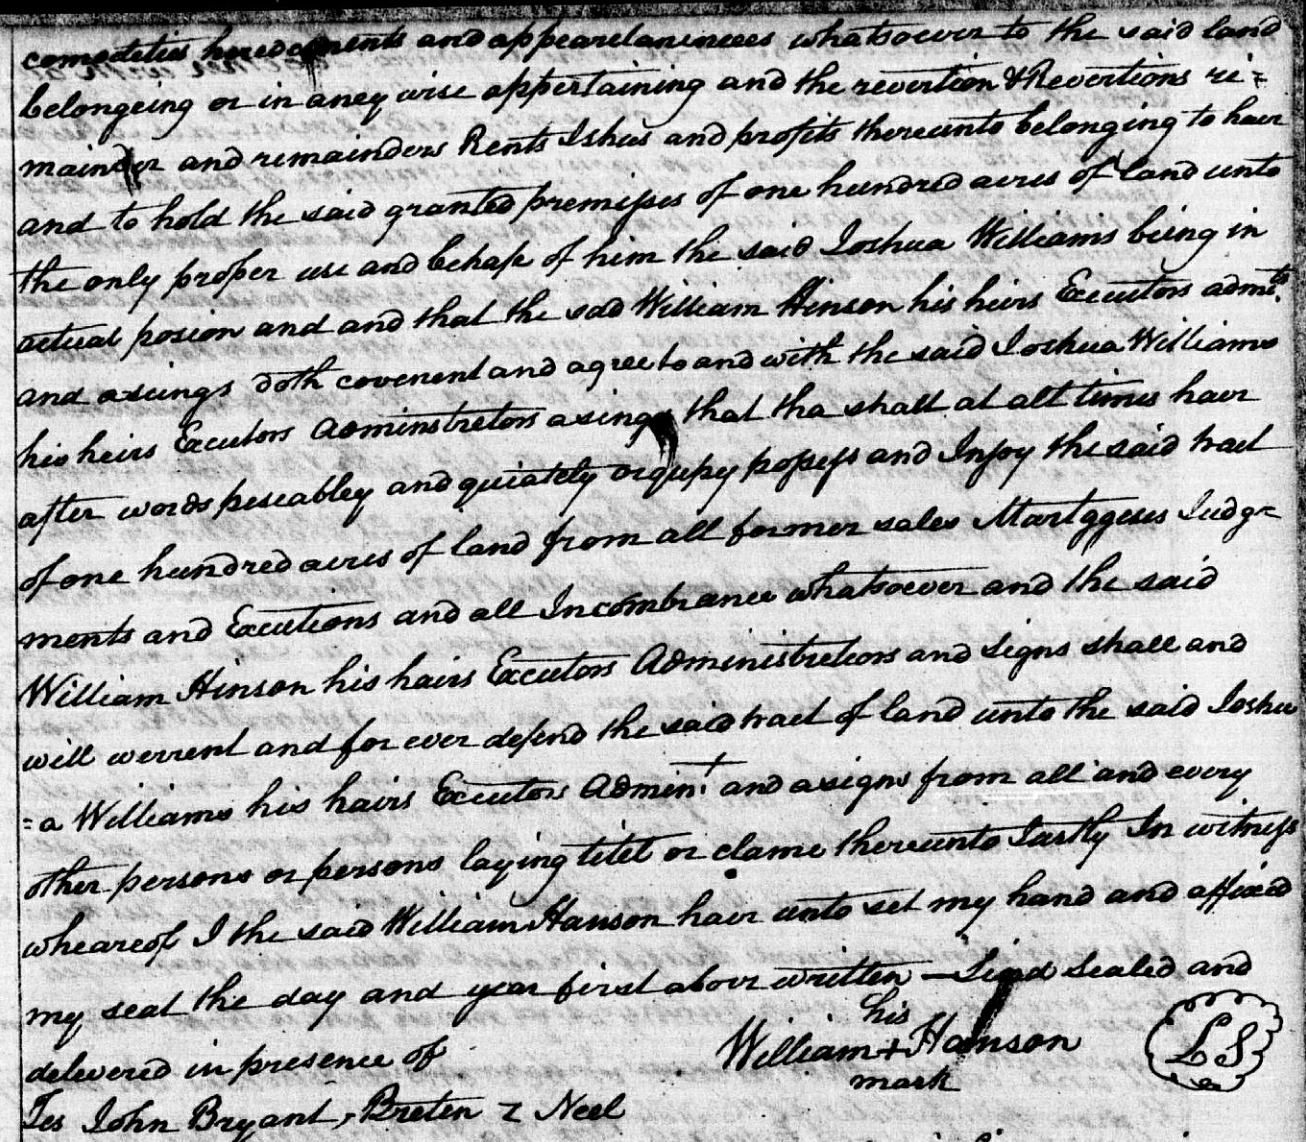 comodities heredements and appearelanencees whatsoever to the said land
belongeing or in aney wise appertaining and the revertion & Revertions re=
mainder and remainders Rents Ishus and profits thereunto belonging to have
and to hold the said granted premises of one hundred acres of land unto
the only proper use and behafe of him the said Joshua Williams being in
actual posion and and that the sad William Hinson his heirs Executors admts.
and aseings doth covenent and agree to and with the said Joshua Williams
his heirs Executors Adminstretors asings that tha shall at all times have
after words peseabley and quiately ocqupy possess and Injoy the said tract
of one hundred acres of land from all former sales Martggeses Judge
ments and Excutions and all Incombrance whatsoever and the said
William Hinson his hairs Executors Administretiors and signs shall and
will werrent and for ever defend the said tract of land unto the said Joshu
=a Williams his hairs Executors Admin.t and asigns from all and every
other persons or persons laying titel or clame thereunto Lastly In witness
wheareof I the said William Hanson have unto set my hand and affixed
my seal the day and year first above written — Sind Sealed and
delevered in presence of
his
William + Hanson
mark
L S
Tes John Bryant, Breten Z Neel